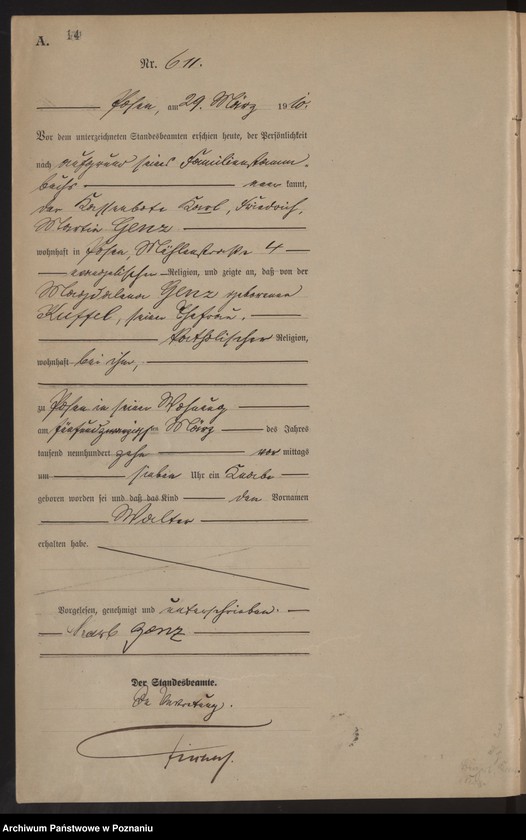 A. 14
Nr. 611.
Posen, am 29. März 1910.
Vor dem unterzeichneten Standesbeamten erschien heute, der Persönlichkeit
nach aufgrund seines Familienstamm-
buchs kannt,
der Kassenbote Karl, Friedrich,
Martin Genz
wohnhaft in Posen, Mühlenstraße 4
evangelischer Religion, und zeigte an, daß von der
Magdalena Genz geborenen
Kuffel, seiner Ehefrau,
katholischer Religion,
wohnhaft bei ihm,
zu Posen in seiner Wohnung
am fünfundzwanzigsten März des Jahres
tausend neunhundert zehn vormittags
um sieben Uhr ein Knabe
geboren worden sei und daß das Kind den Vornamen
Walter
erhalten habe.
Vorgelesen, genehmigt und unterschrieben.
Karl Genz
Der Standesbeamte.
In Vertretung.
Archiwum Państwowe w Poznaniu